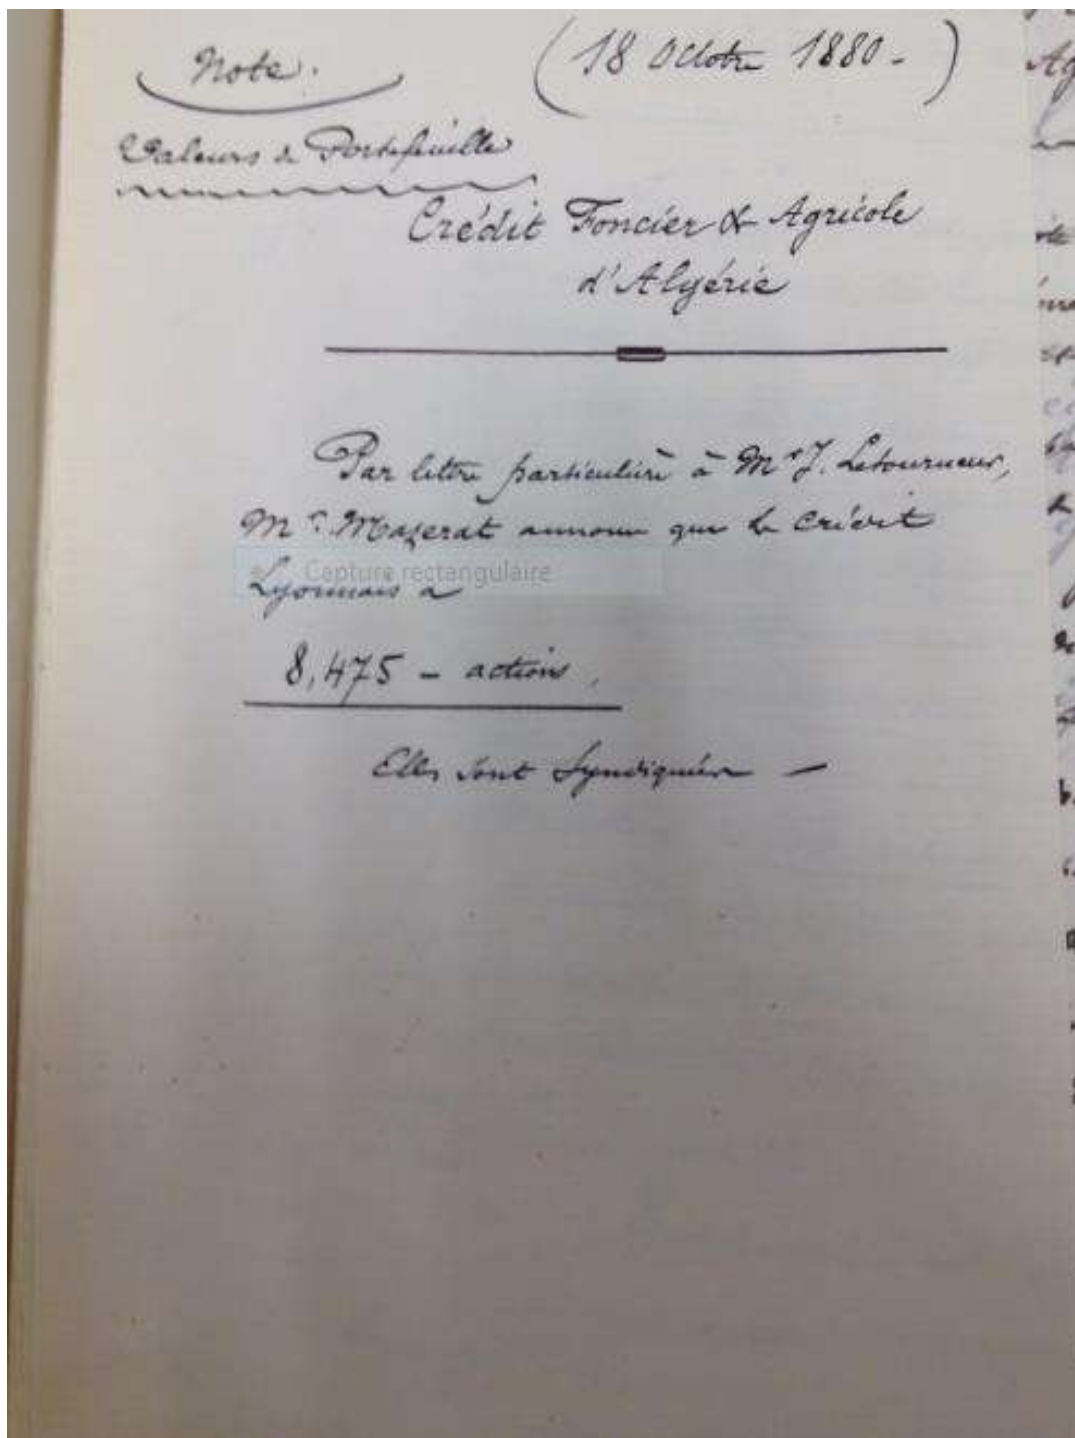 Note. (18 Octbre 1880 -)
Valeurs de Portefeuille
Crédit Foncier & Agricole
d'Algérie
Par lettre particulière à Mr J. Letourneur,
Mr Mazerat annonce que le Crédit
Lyonnais a
Capture rectangulaire
8,475 - actions,
Elles sont Syndiquées -